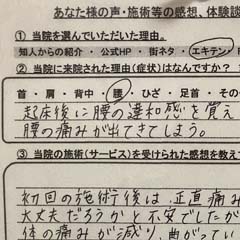 あなた様の声・施術等の感想、体験談
① 当院を選んでいただいた理由。
知人からの紹介 ・ 公式HP ・ 街ネタ ・ エキテン
② 当院に来院された理由(症状)はなんですか?
首 ・ 肩 ・ 背中 ・ 腰 ・ ひざ ・ 足首 ・ その
起床後に腰の違和感を覚え
腰の痛みが出てきてしまう。
③ 当院の施術(サービス)を受けられた感想を教え
初回の施術後は、正直痛み
大丈夫だろうかと不安でしたが
体の痛みが減り、曲がってい